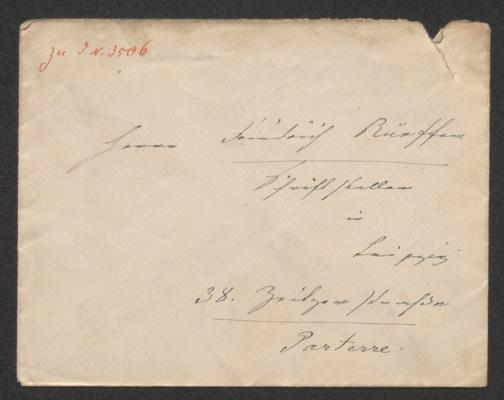 Zu I.N. 3506
Herrn Friedrich
Schriftsteller
in
Leipzig
38. Zeitzerstraße
Parterre.